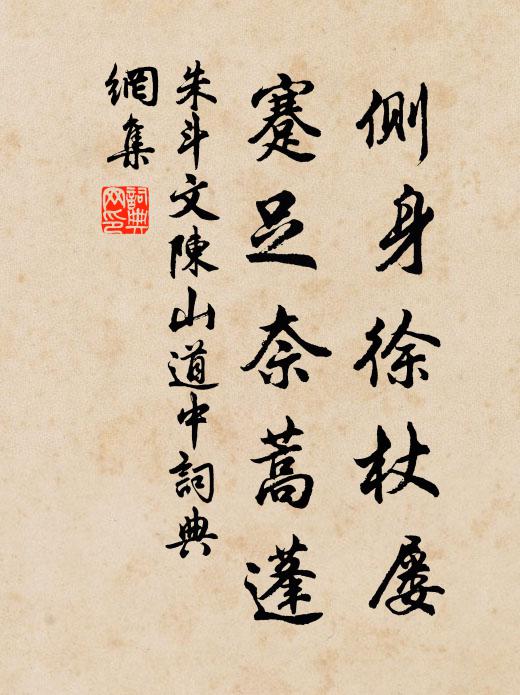 側身徐杖屨
蹇足奈蒿蓬
朱斗文陳山道中詞典
網集
詞典網印